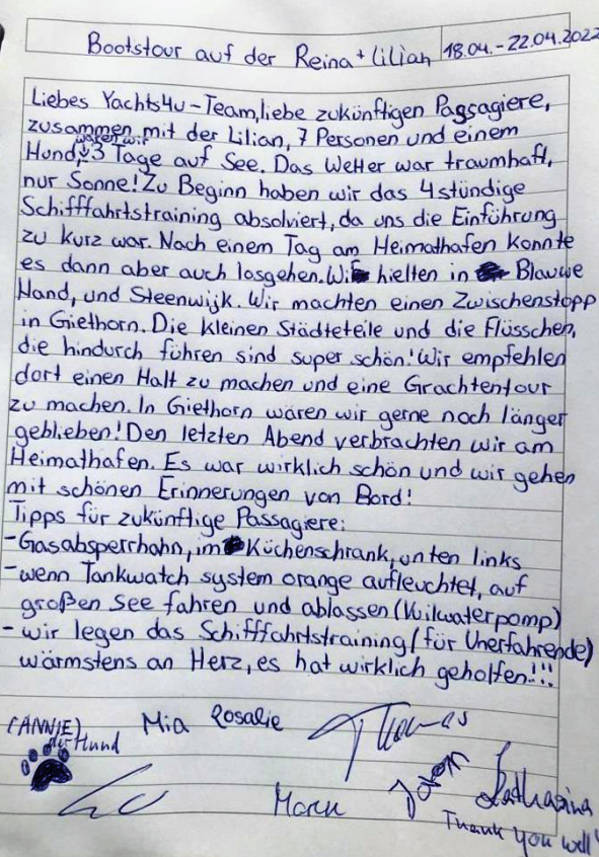 Bootstour auf der Reina + Lilian 18.04. - 22.04.2022
Liebes Yachts4u-Team, liebe zukünftigen Passagiere,
zusammen mit der Lilian, 7 Personen und einem
Hund, waren wir 3 Tage auf See. Das Wetter war traumhaft,
nur Sonne! Zu Beginn haben wir das 4stündige
Schifffahrtstraining absolviert, da uns die Einführung
zu kurz war. Nach einem Tag am Heimathafen konnte
es dann aber auch losgehen. Wir hielten in Blauwe
Hand, und Steenwijk. Wir machten einen Zwischenstopp
in Giethorn. Die kleinen Städteteile und die Flüsschen,
die hindurch führen sind super schön! Wir empfehlen
dort einen Halt zu machen und eine Grachtentour
zu machen. In Giethorn wären wir gerne noch länger
geblieben! Den letzten Abend verbrachten wir am
Heimathafen. Es war wirklich schön und wir gehen
mit schönen Erinnerungen von Bord!
Tipps für zukünftige Passagiere:
- Gasabsperrhahn, im Küchenschrank, unten links
- wenn Tankwatch system orange aufleuchtet, auf
großen See fahren und ablassen (Vuilwaterpomp)
- wir legen das Schifffahrtstraining (für Unerfahrende)
wärmstens an Herz, es hat wirklich geholfen!!!
(ANNIE) Mia Rosalie Thomas
der Hund
Katharina
Thank you well